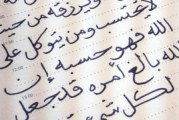 ويرزقه من حيث
لا يحتسب ومن يتوكل على
الله فهو حسبه إن
الله بالغ أمره قد جعل
لكل شيء